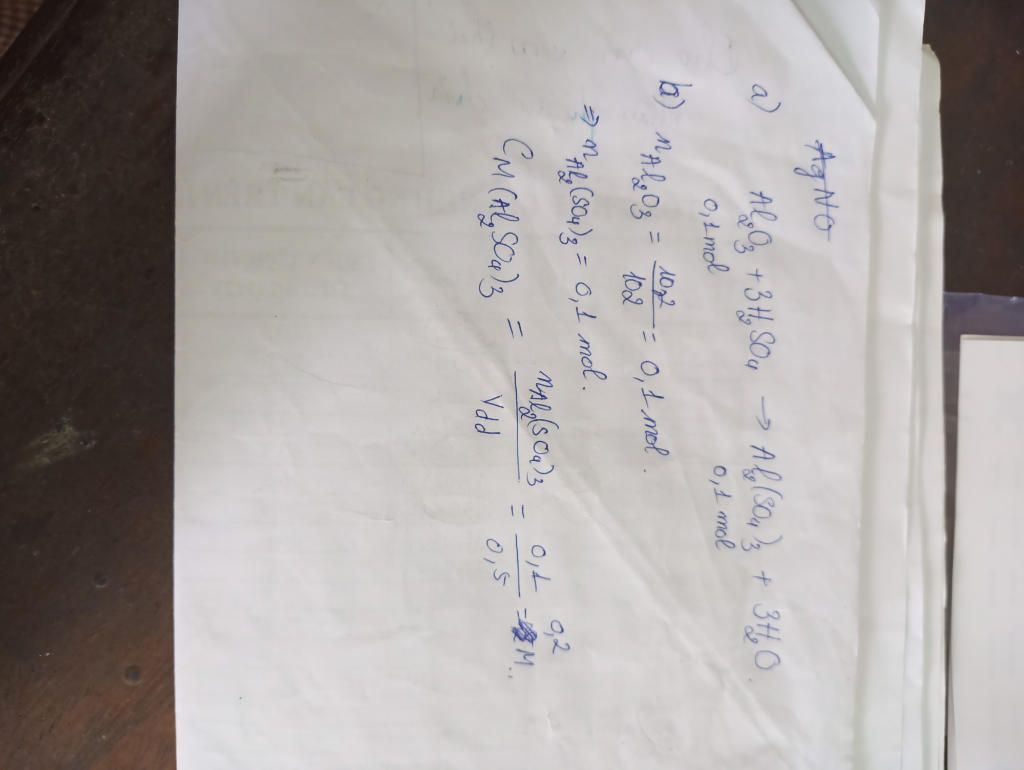 AgNO
a) Al2O3 + 3H2SO4 → Al2(SO4)3 + 3H2O.
0,1mol 0,1 mol
b) nAl2O3 = 10,2/102 = 0,1 mol.
=> nAl2(SO4)3 = 0,1 mol.
CM(Al2SO4)3 = nAl2(SO4)3/Vdd = 0,1/0,5 = 0,2 M.